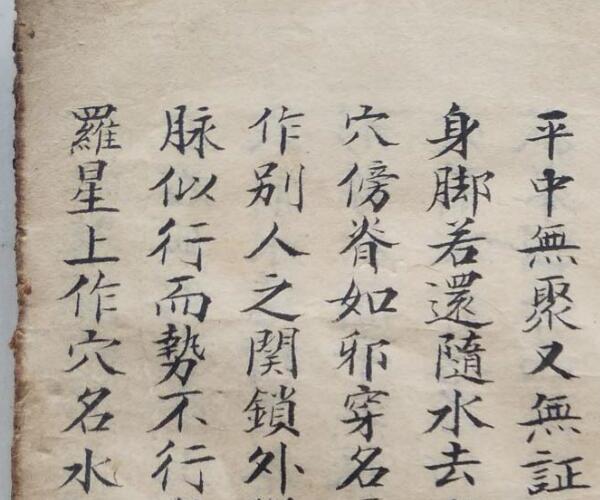 平中無聚又無証
身脚若還隨水去
穴傍脊如邪穿名
作別人之関鎖外
脉似行而勢不行
羅星上作穴名水